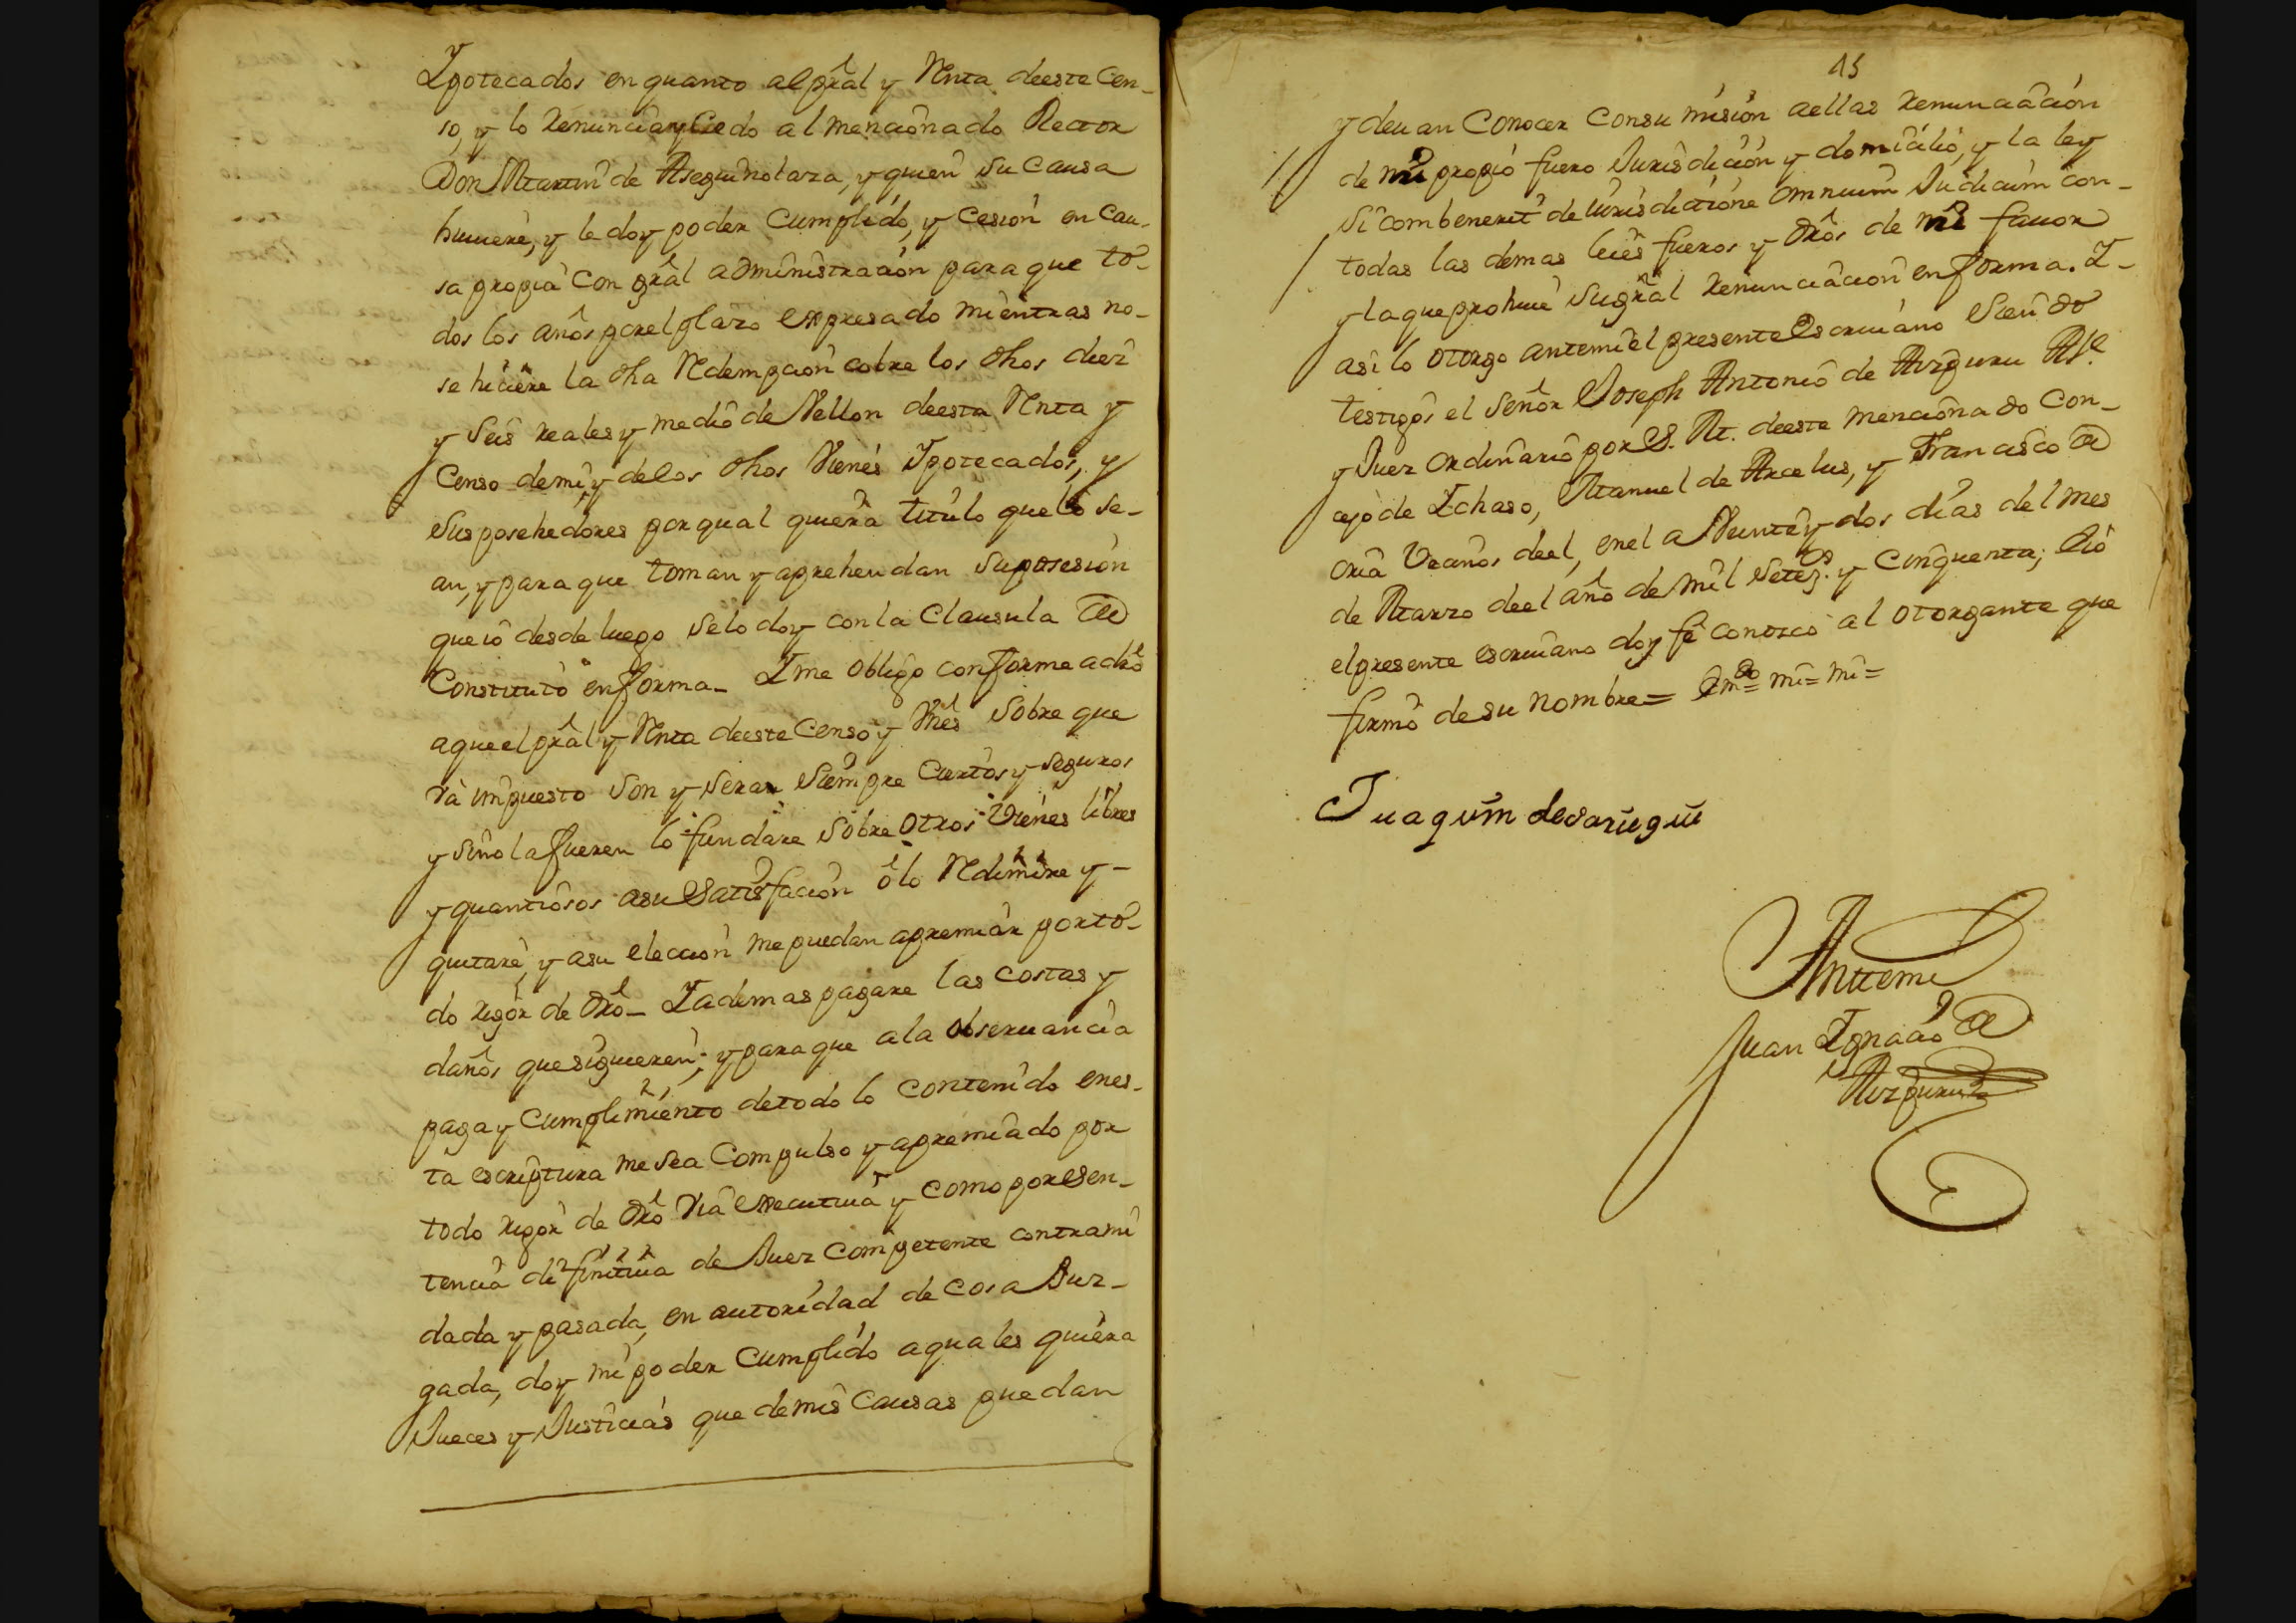 Ypotecados en quanto al pral y Renta de este Cen-
so, y lo Renuncia y Cedo al mencionado Rector
Don Martin de Aseguinolaza, y quien su Causa
huuiere, y le doy poder Cumplido, y Cesion en Cau-
sa propia Con gral administracion para que to-
dos los años por el plazo expresado mientras no-
se hiciere la dha Redempcion cobre los dhos diez
y Seis reales y medio de Vellon de esta Renta y
Censo de mi, y de los dhos Vienes Ypotecados, y
Sus posehedores por qual quiera titulo que lo se-
an, y para que toman y aprehendan Su posesion
que io desde luego Se lo doy con la Clausula de
Constituto en forma_ Y me obligo conforme a dro
a que el pral y Renta de este Censo y Vnes Sobre que
va impuesto Son y Seran Siempre Ciertos y Seguros
y Sino la fueren lo fundare Sobre otros Vienes libres
y quantiosos a su Satisfacion ó lo Redimire y-
quitare, y a su eleccion me puedan apremiar por to-
do rigor de Dro_ Y ademas pagare las costas y
daños que siguieren; y para que a la observancia
paga y Cumplimiento de todo lo contenido en es-
ta escriptura me Sea Compulso y apremiado por
todo rigor de Dro Via executiua y como por Sen-
tencia difinitiua de Juez Competente contra mi
dada y pasada, en autoridad de cosa Juz-
gada, doy mi poder Cumplido a quales quiera
Jueces y Justicias que de mis Causas puedan
15
y deuan Conocer Con su mision a ellas Renunciacion
de mi propio fuero Jurisdicion y domicilio, y la ley
Si combenerit de iurisdictione omnium Judicium con-
todas las demas leies fueros y dros de mi fauor
y la que prohiue Su gral Renunciacion en forma. Y-
asi lo otorgo ante mi el presente Escriuano Siendo
testigos el Señor Joseph Antonio de Aizpuru Alle
y Juez ordinario por S. M. de este mencionado Con-
cejo de Ichaso, Manuel de Arcelus, y Francisco de
oria Vecinos de el, en el a Veinte y dos dias del mes
de Marzo de el año de mil Setezs. y Cinquenta; E io
el presente escriuano doy fe conozco al otorgante que
firmo de su nombre= Emdo= mi= mi=
Juaquim de sariegui
Antemi
Juan Ygnacio de
Aizpuru